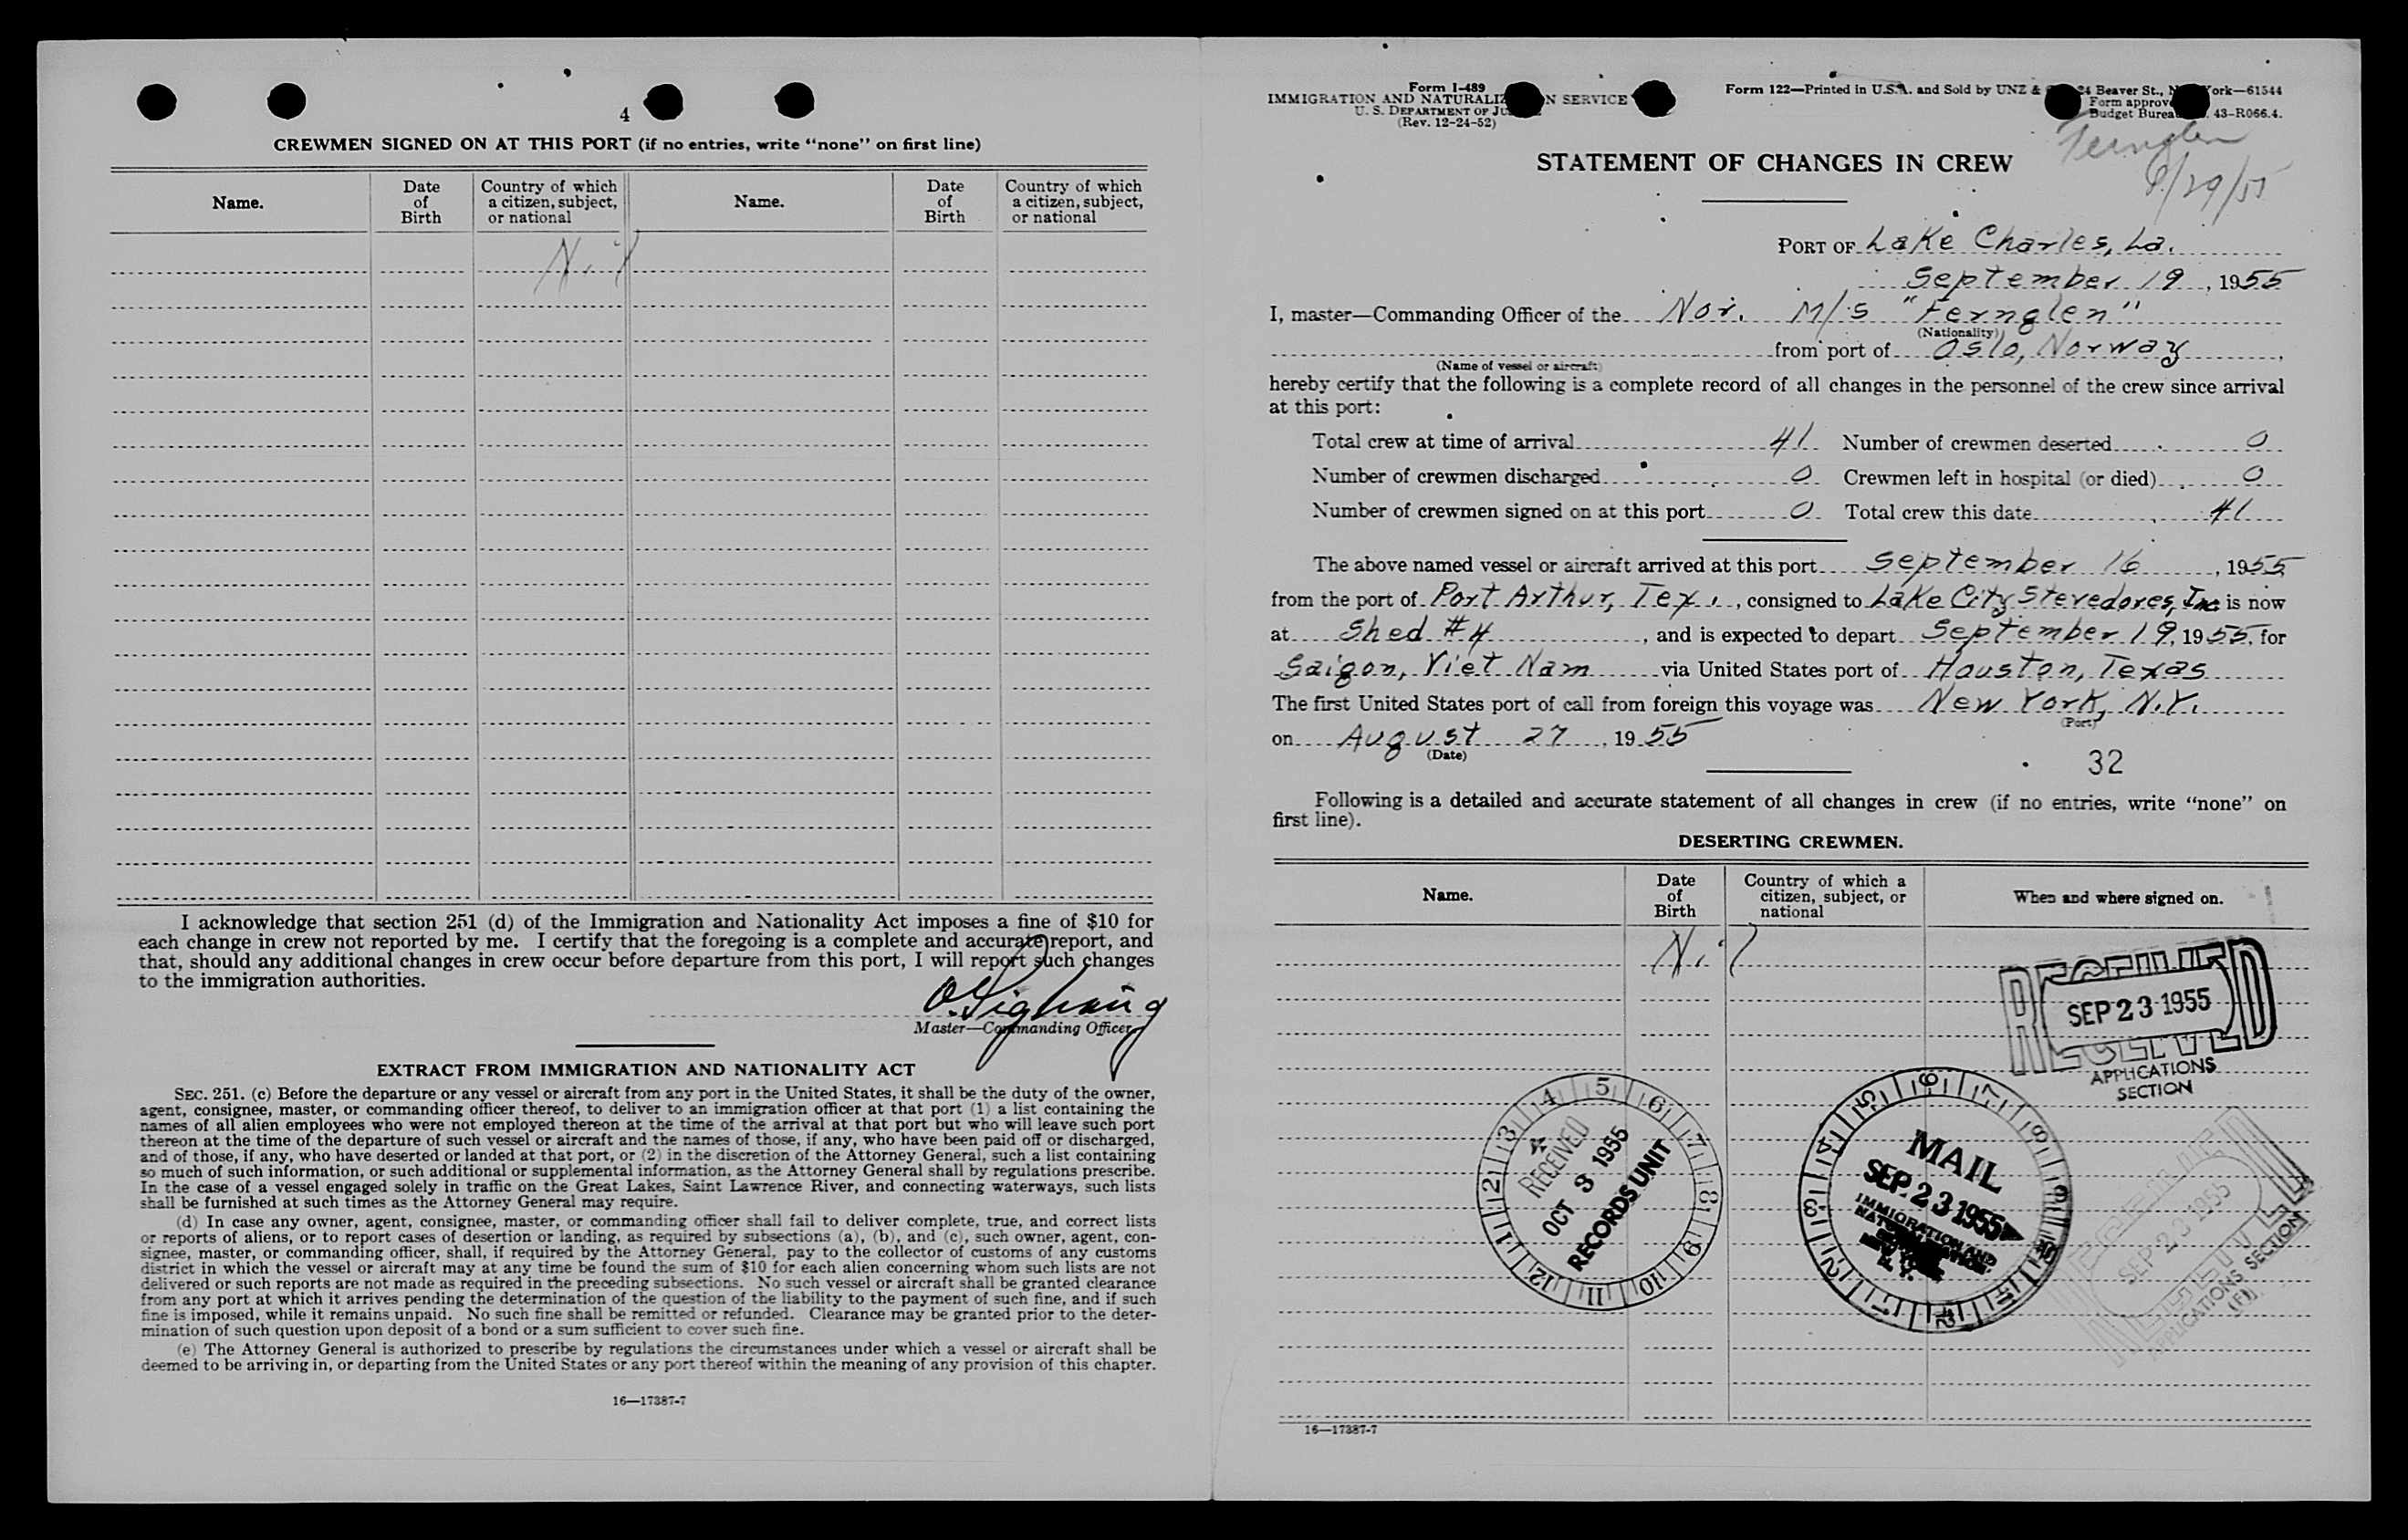 4
CREWMEN SIGNED ON AT THIS PORT (if no entries, write "none" on first line)
Name. Date of Birth Country of which a citizen, subject, or national Name. Date of Birth Country of which a citizen, subject, or national
Nil
I acknowledge that section 251 (d) of the Immigration and Nationality Act imposes a fine of $10 for
each change in crew not reported by me. I certify that the foregoing is a complete and accurate report, and
that, should any additional changes in crew occur before departure from this port, I will report such changes
to the immigration authorities.
Master—Commanding Officer
EXTRACT FROM IMMIGRATION AND NATIONALITY ACT
SEC. 251. (c) Before the departure or any vessel or aircraft from any port in the United States, it shall be the duty of the owner,
agent, consignee, master, or commanding officer thereof, to deliver to an immigration officer at that port (1) a list containing the
names of all alien employees who were not employed thereon at the time of the arrival at that port but who will leave such port
thereon at the time of the departure of such vessel or aircraft and the names of those, if any, who have been paid off or discharged,
and of those, if any, who have deserted or landed at that port, or (2) in the discretion of the Attorney General, such a list containing
so much of such information, or such additional or supplemental information, as the Attorney General shall by regulations prescribe.
In the case of a vessel engaged solely in traffic on the Great Lakes, Saint Lawrence River, and connecting waterways, such lists
shall be furnished at such times as the Attorney General may require.
(d) In case any owner, agent, consignee, master, or commanding officer shall fail to deliver complete, true, and correct lists
or reports of aliens, or to report cases of desertion or landing, as required by subsections (a), (b), and (c), such owner, agent, con-
signee, master, or commanding officer, shall, if required by the Attorney General, pay to the collector of customs of any customs
district in which the vessel or aircraft may at any time be found the sum of $10 for each alien concerning whom such lists are not
delivered or such reports are not made as required in the preceding subsections. No such vessel or aircraft shall be granted clearance
from any port at which it arrives pending the determination of the question of the liability to the payment of such fine, and if such
fine is imposed, while it remains unpaid. No such fine shall be remitted or refunded. Clearance may be granted prior to the deter-
mination of such question upon deposit of a bond or a sum sufficient to cover such fine.
(e) The Attorney General is authorized to prescribe by regulations the circumstances under which a vessel or aircraft shall be
deemed to be arriving in, or departing from the United States or any port thereof within the meaning of any provision of this chapter.
16—17387-7
Form I-489
IMMIGRATION AND NATURALIZ N SERVICE
U. S. DEPARTMENT OF JU
(Rev. 12-24-52)
Form 122—Printed in U.S.A. and Sold by UNZ & 24 Beaver St., N ork—61544
Form approve
Budget Burea 43-R066.4.
Fernglen
/29/55
STATEMENT OF CHANGES IN CREW
PORT OF Lake Charles, La.
September 19, 1955
I, master—Commanding Officer of the Nor. M/S "Fernglen"
(Nationality)
from port of Oslo, Norway,
(Name of vessel or aircraft)
hereby certify that the following is a complete record of all changes in the personnel of the crew since arrival
at this port:
Total crew at time of arrival 41 Number of crewmen deserted 0
Number of crewmen discharged 0 Crewmen left in hospital (or died) 0
Number of crewmen signed on at this port 0 Total crew this date 41
The above named vessel or aircraft arrived at this port September 16, 1955
from the port of Port Arthur, Tex., consigned to Lake City Stevedores, Inc is now
at Shed #4, and is expected to depart September 19, 1955, for
Saigon, Viet Nam via United States port of Houston, Texas
The first United States port of call from foreign this voyage was New York, N.Y.
(Port)
on August 27, 1955
(Date)
32
Following is a detailed and accurate statement of all changes in crew (if no entries, write "none" on
first line).
DESERTING CREWMEN.
Name. Date of Birth Country of which a citizen, subject, or national When and where signed on.
Nil
RECEIVED
SEP 23 1955
APPLICATIONS
SECTION
RECEIVED
OCT 3 1955
RECORDS UNIT
MAIL
SEP 23 1955
IMMIGRATION AND
N. Y.
RECEIVED
SEP 23 1955
APPLICATIONS SECTION
16—17387-7